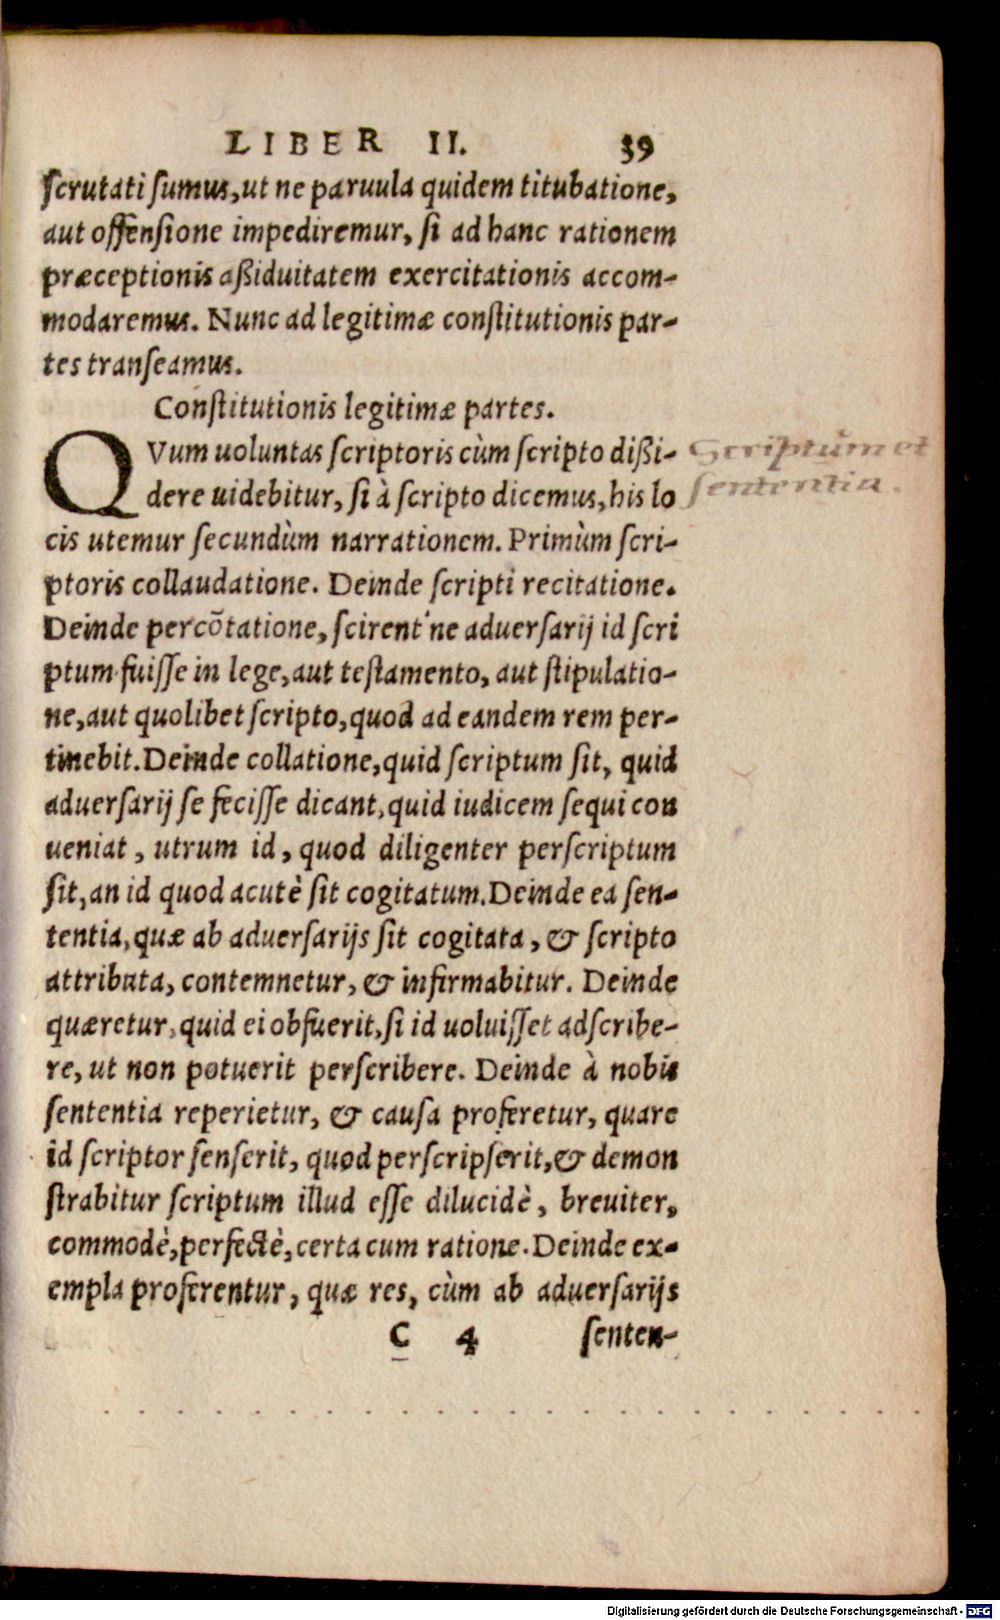 LIBER II. 39
scrutati sumus, ut ne paruula quidem titubatione,
aut offensione impediremur, si ad hanc rationem
præceptionis aßiduitatem exercitationis accom-
modaremus. Nunc ad legitimæ constitutionis par-
tes transeamus.
Constitutionis legitimæ partes.
QVum uoluntas scriptoris cùm scripto dißi-
dere uidebitur, si à scripto dicemus, his lo
cis utemur secundùm narrationem. Primùm scri-
ptoris collaudatione. Deinde scripti recitatione.
Deinde percõtatione, scirent'ne aduersarij id scri
ptum fuisse in lege, aut testamento, aut stipulatio-
ne, aut quolibet scripto, quod ad eandem rem per-
tinebit. Deinde collatione, quid scriptum sit, quid
aduersarij se fecisse dicant, quid iudicem sequi con
ueniat, utrum id, quod diligenter perscriptum
sit, an id quod acutè sit cogitatum. Deinde ea sen-
tentia, quæ ab aduersarijs sit cogitata, & scripto
attributa, contemnetur, & infirmabitur. Deinde
quæretur, quid ei obfuerit, si id uoluisset adscribe-
re, ut non potuerit perscribere. Deinde à nobis
sententia reperietur, & causa proferetur, quare
id scriptor senserit, quod perscripserit, & demon
strabitur scriptum illud esse dilucidè, breuiter,
commodè, perfectè, certa cum ratione. Deinde ex-
empla proferentur, quæ res, cùm ab aduersarijs
C 4 senten-
Scriptum et
sententia.
Digitalisierung gefördert durch die Deutsche Forschungsgemeinschaft - DFG